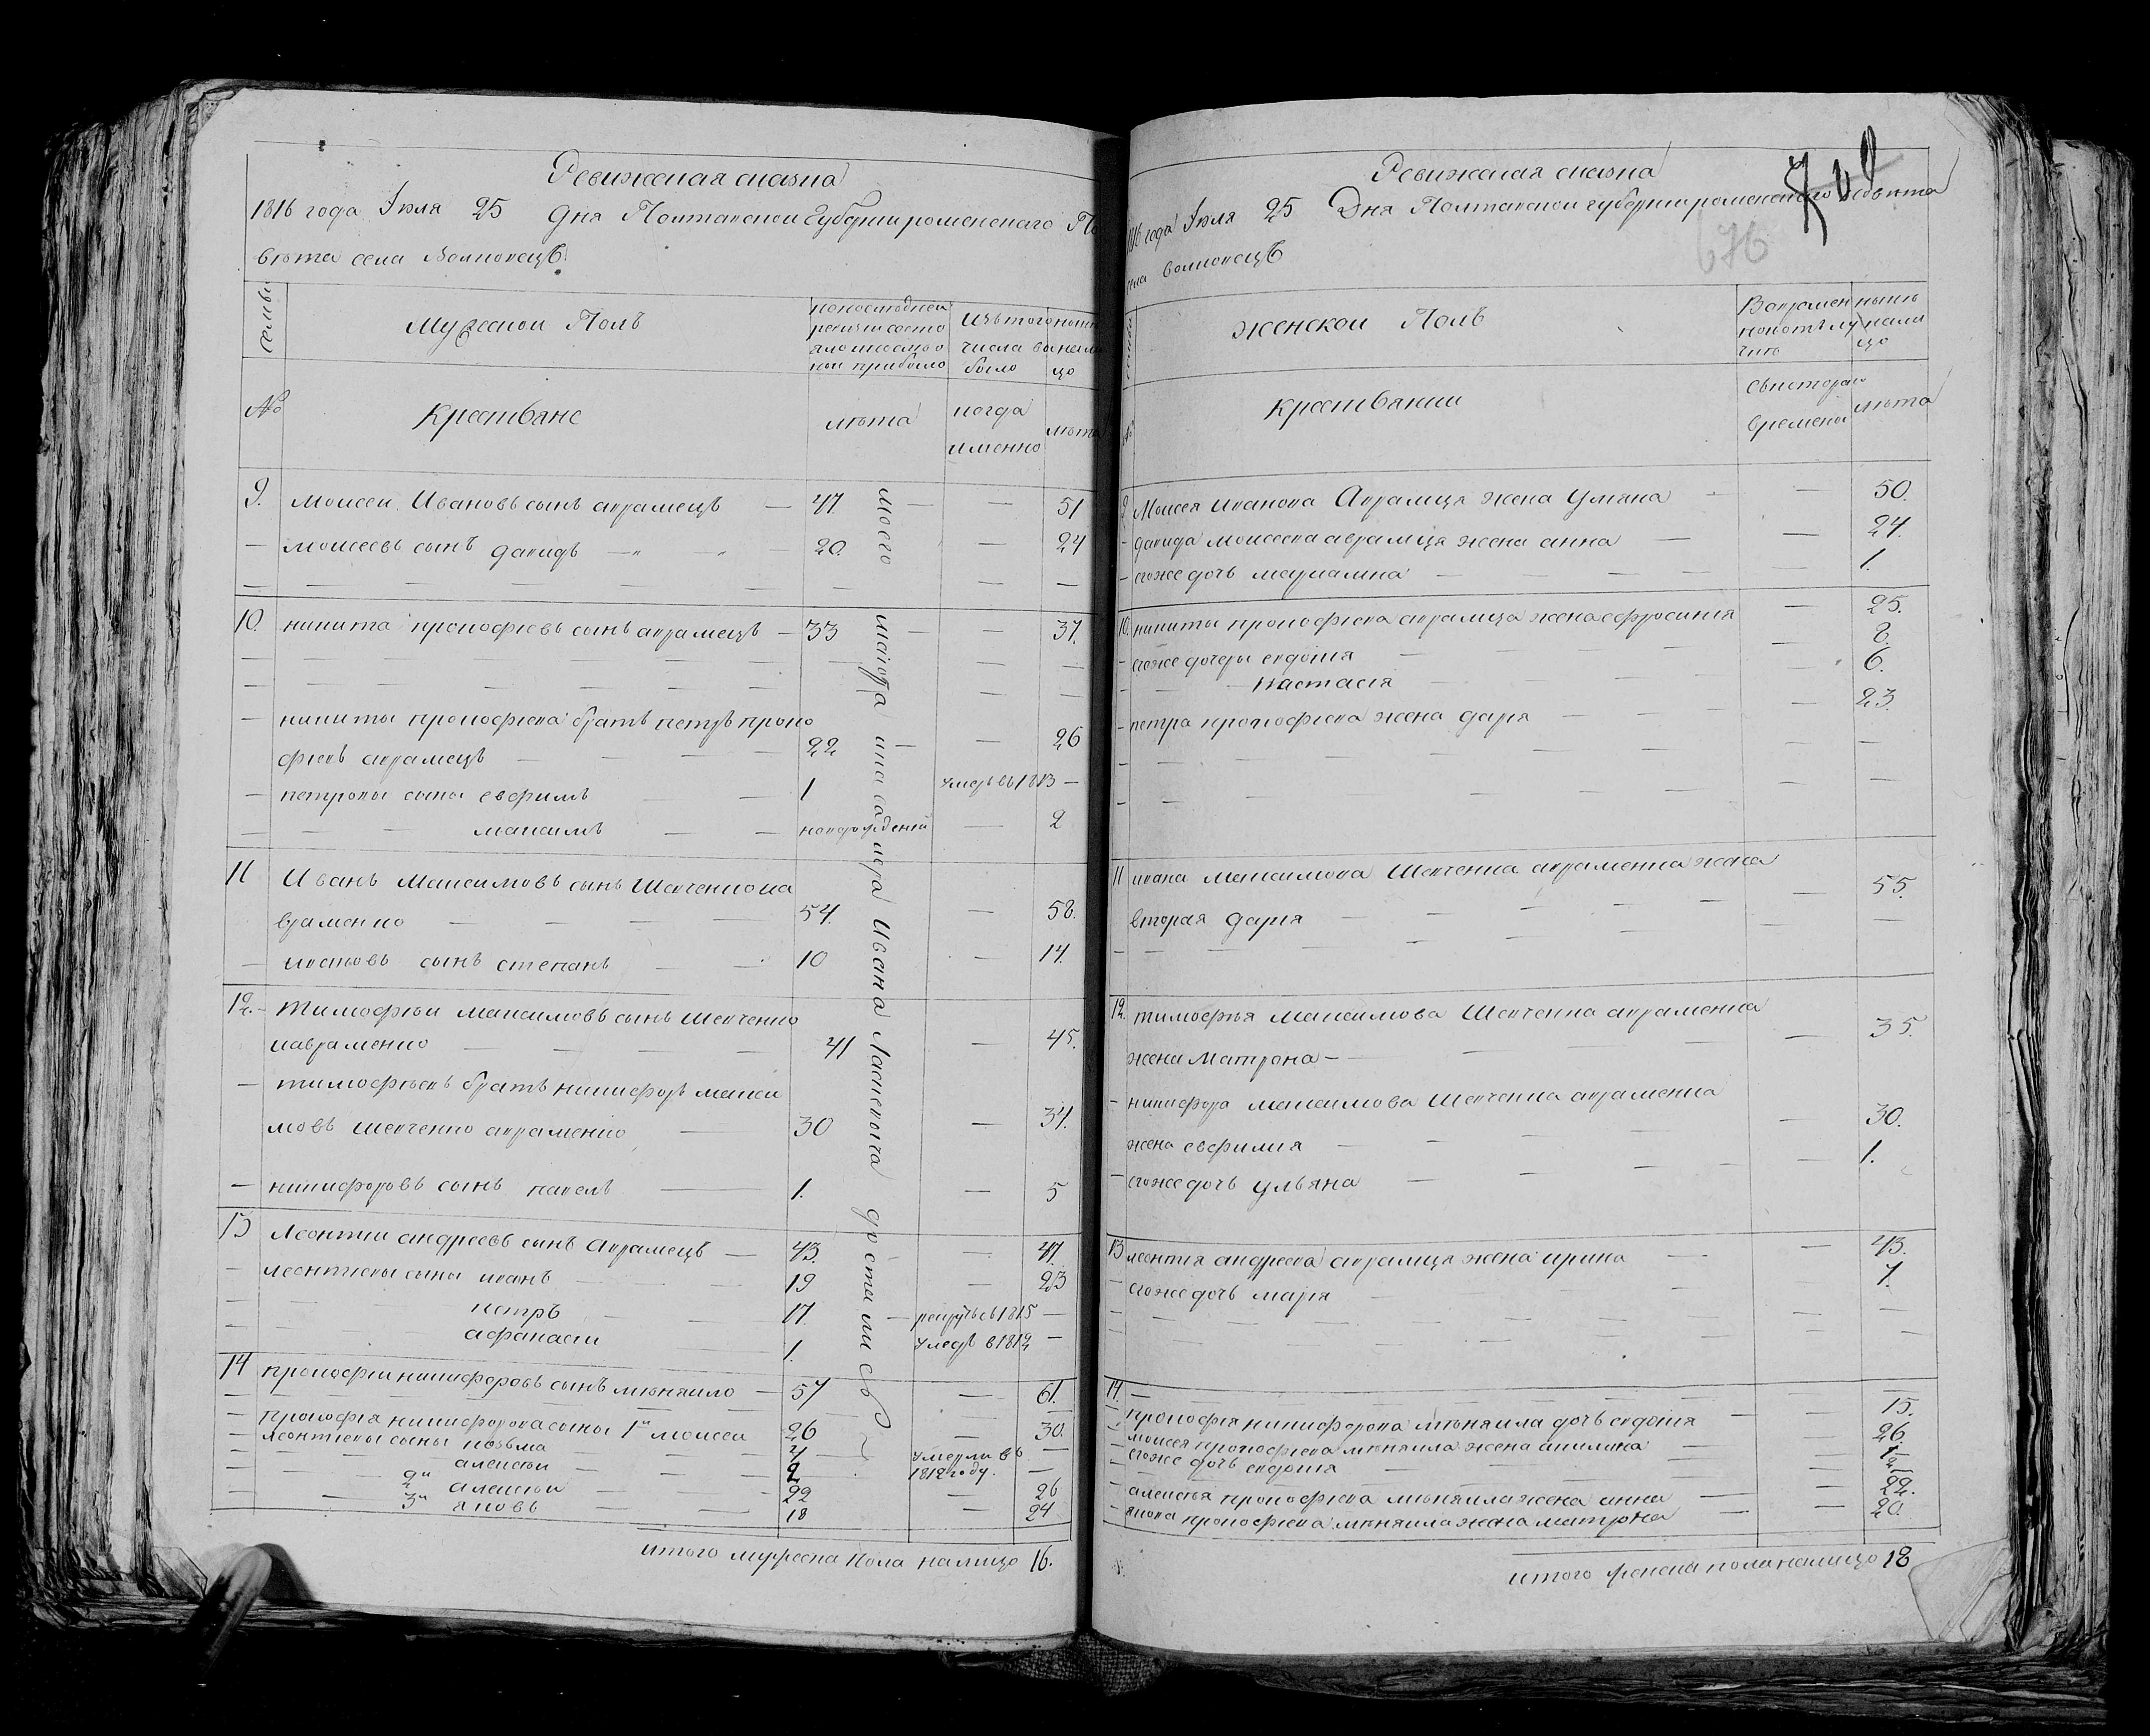 Ревижеская сказка
1816 года Июля 25 Дня Полтавской Губернии роменского По
вета села Волковецъ
семьи
Мужеской Полъ
по последней
ревизии состо
яло и после о
ной прибыло
Изъ того
числа вы
было
ныне
нали
цо
№
Крестьяне
лета
когда
именно
лета
9. Моисей Ивановъ сынъ аврамецъ — 47 — — 51
— моисеевъ сынъ давидъ — „ „ 20. — 24
10. никита прокофиевъ сынъ аврамецъ — 33 — — 37.
— никиты прокофиева братъ петръ проко
фиевъ аврамецъ — 22 — — 26
— петровы сыны евфимъ — 1 умеръ въ 1813 —
— максимъ — новорожденный — 2
11 Иванъ Максимовъ сынъ Шевченко иа
враменко — 54. — 58.
— ивановъ сынъ степанъ — 10 — 14.
12. Тимофей максимовъ сынъ шевченко
иавраменко — 41 — 45.
— тимофеевъ братъ никифоръ макси
мовъ шевченко авраменко — 30 — 34.
— никифоровъ сынъ павелъ — 1. — 5
13 Леонтий андреевъ сынъ Аврамецъ — 43. — 47.
— леонтиевы сыны иванъ — 19 — 23
— петръ — 17 — рекрутъ въ 1815 —
— афанасий — 1. умеръ в 1812 —
14 прокофий никифоровъ сынъ миняило — 57 — 61.
— прокофия никифорова сыны 1й моисей 26 — 30.
— леонтиевы сыны козьма 4 — умерли въ —
— алексей — 2 1812 году. —
— 2й алексей — 22 — 26
— 3й яковъ — 18 — 24
итого мужеска пола налицо 16.
Моего маиора и кавалера Ивана Ласкевича
Ревижская сказка
1816 года Июля 25 Дня Полтавской губернии роменского повета
села волковецъ
676
семьи
Женской Полъ
Во времен
ной отлу
чке
ныне
нали
цо
№
Крестьянки
съ которого
времени
лета
9 Моисея иванова Аврамца жена Уляна — — 50.
— давида моисеева аврамца жена анна — — 24.
— егоже дочь мариамна — 1.
10. никиты прокофиева аврамца жена ефросиния — 25.
— егоже дочери евдокия — 8.
— Настасия — 6.
— петра прокофиева жена дария — 23.
11 ивана максимова Шевченка авраменка жена
вторая дария — 55.
12. тимофея Максимова Шевченка авраменка
жена Матрона — 35.
— никифора максимова шевченка авраменка
жена евфимия — 30.
— егоже дочь ульяна — 1.
13 леонтия андреева аврамца жена ирина — 43.
— егоже дочь мария — 7.
14. —
— прокофия никифорова миняила дочь евдокия — 15.
— моисея прокофиева миняила жена акилина — 26
— егоже дочь евдокия — 1/2
— алексея прокофиева миняила жена анна — 22.
— якова прокофиева миняила жена матрона — 20.
итого женска пола налицо 18